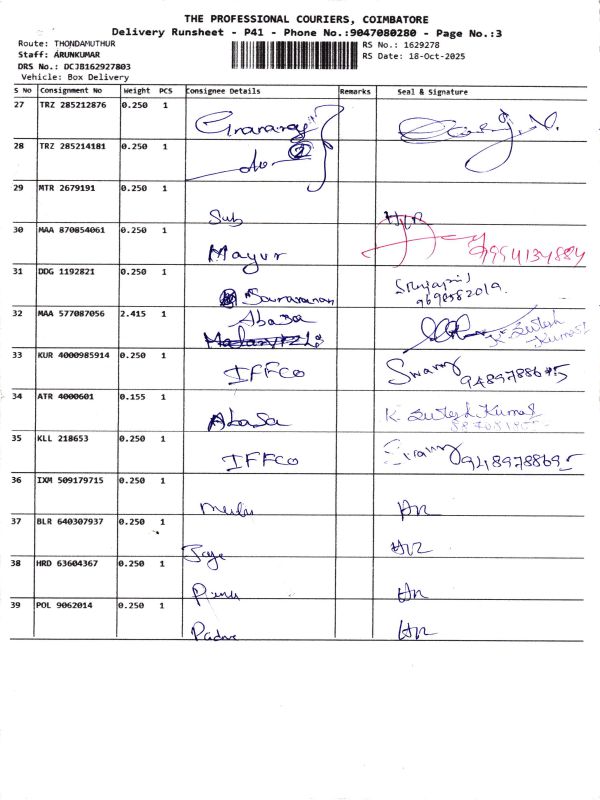 THE PROFESSIONAL COURIERS, COIMBATORE
Delivery Runsheet - P41 - Phone No.:9047080280 - Page No.:3
Route: THONDAMUTHUR
Staff: ARUNKUMAR
DRS No.: DCJB162927803
Vehicle: Box Delivery
RS No.: 1629278
RS Date: 18-Oct-2025
S No Consignment No Weight PCS Consignee Details Remarks Seal & Signature
27 TRZ 285212876 0.250 1
28 TRZ 285214181 0.250 1
do 2
29 MTR 2679191 0.250 1
Sub
30 MAA 870854061 0.250 1
Mayur
31 DDG 1192821 0.250 1
Saravanan 9690582019
32 MAA 577087056 2.415 1
Abasa
33 KUR 4000985914 0.250 1
IFFCO Swamy
34 ATR 4000601 0.155 1
Abasa K. Sutesh Kumar
35 KLL 218653 0.250 1
IFFCO 9489788695
36 IXM 509179715 0.250 1
37 BLR 640307937 0.250 1
38 HRD 63604367 0.250 1
39 POL 9062014 0.250 1